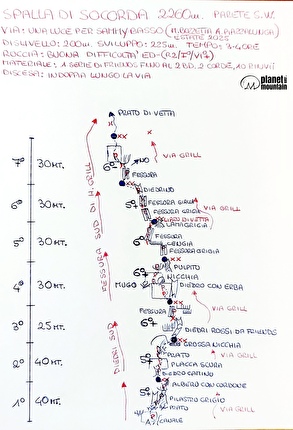 SPALLA DI SOCORDA 2260m. PARETE S.W.
VIA: UNA LUCE PER SAMMY BASSO
ESTATE 2025
DISLIVELLO: 200m. SVILUPPO: 225m. TEMPO: 3-4 ORE
ROCCIA: BUONA DIFFICOLTÀ
MATERIALE: 1 SERIE DI FRIENDS FINO AL 2 BD, 2 CORDE, 10 RINVII
DISCESA: IN DOPPIA LUNGO LA VIA
planet mountain
PRATO DI VETTA
VIA GRILL
NO
7° 30MT. 6°
FESSURA
DIEDRINO
6° 30MT. 5°
FESSURA GIALLA
FESSURA GRIGIA
VIA GRILL
5° 30MT. 6°
FESSURA
CENGIA
FESSURA GRIGIA
PULPITO
NICCHIA
4° 30MT. MUGO
DIEDRO CON ERBA
FESSURA
VIA GRILL
3° 25MT.
DIEDRI ROSSI DA FRIENDS
GROSSA NICCHIA
PRATO
VIA GRILL
2° 40MT.
PLACCA SCURA
DIEDRO CAMINO
ALBERO CON CORDONE
1° 40MT. 5°
PILASTRO GRIGIO
PRATO
VIA GRILL
CANALE